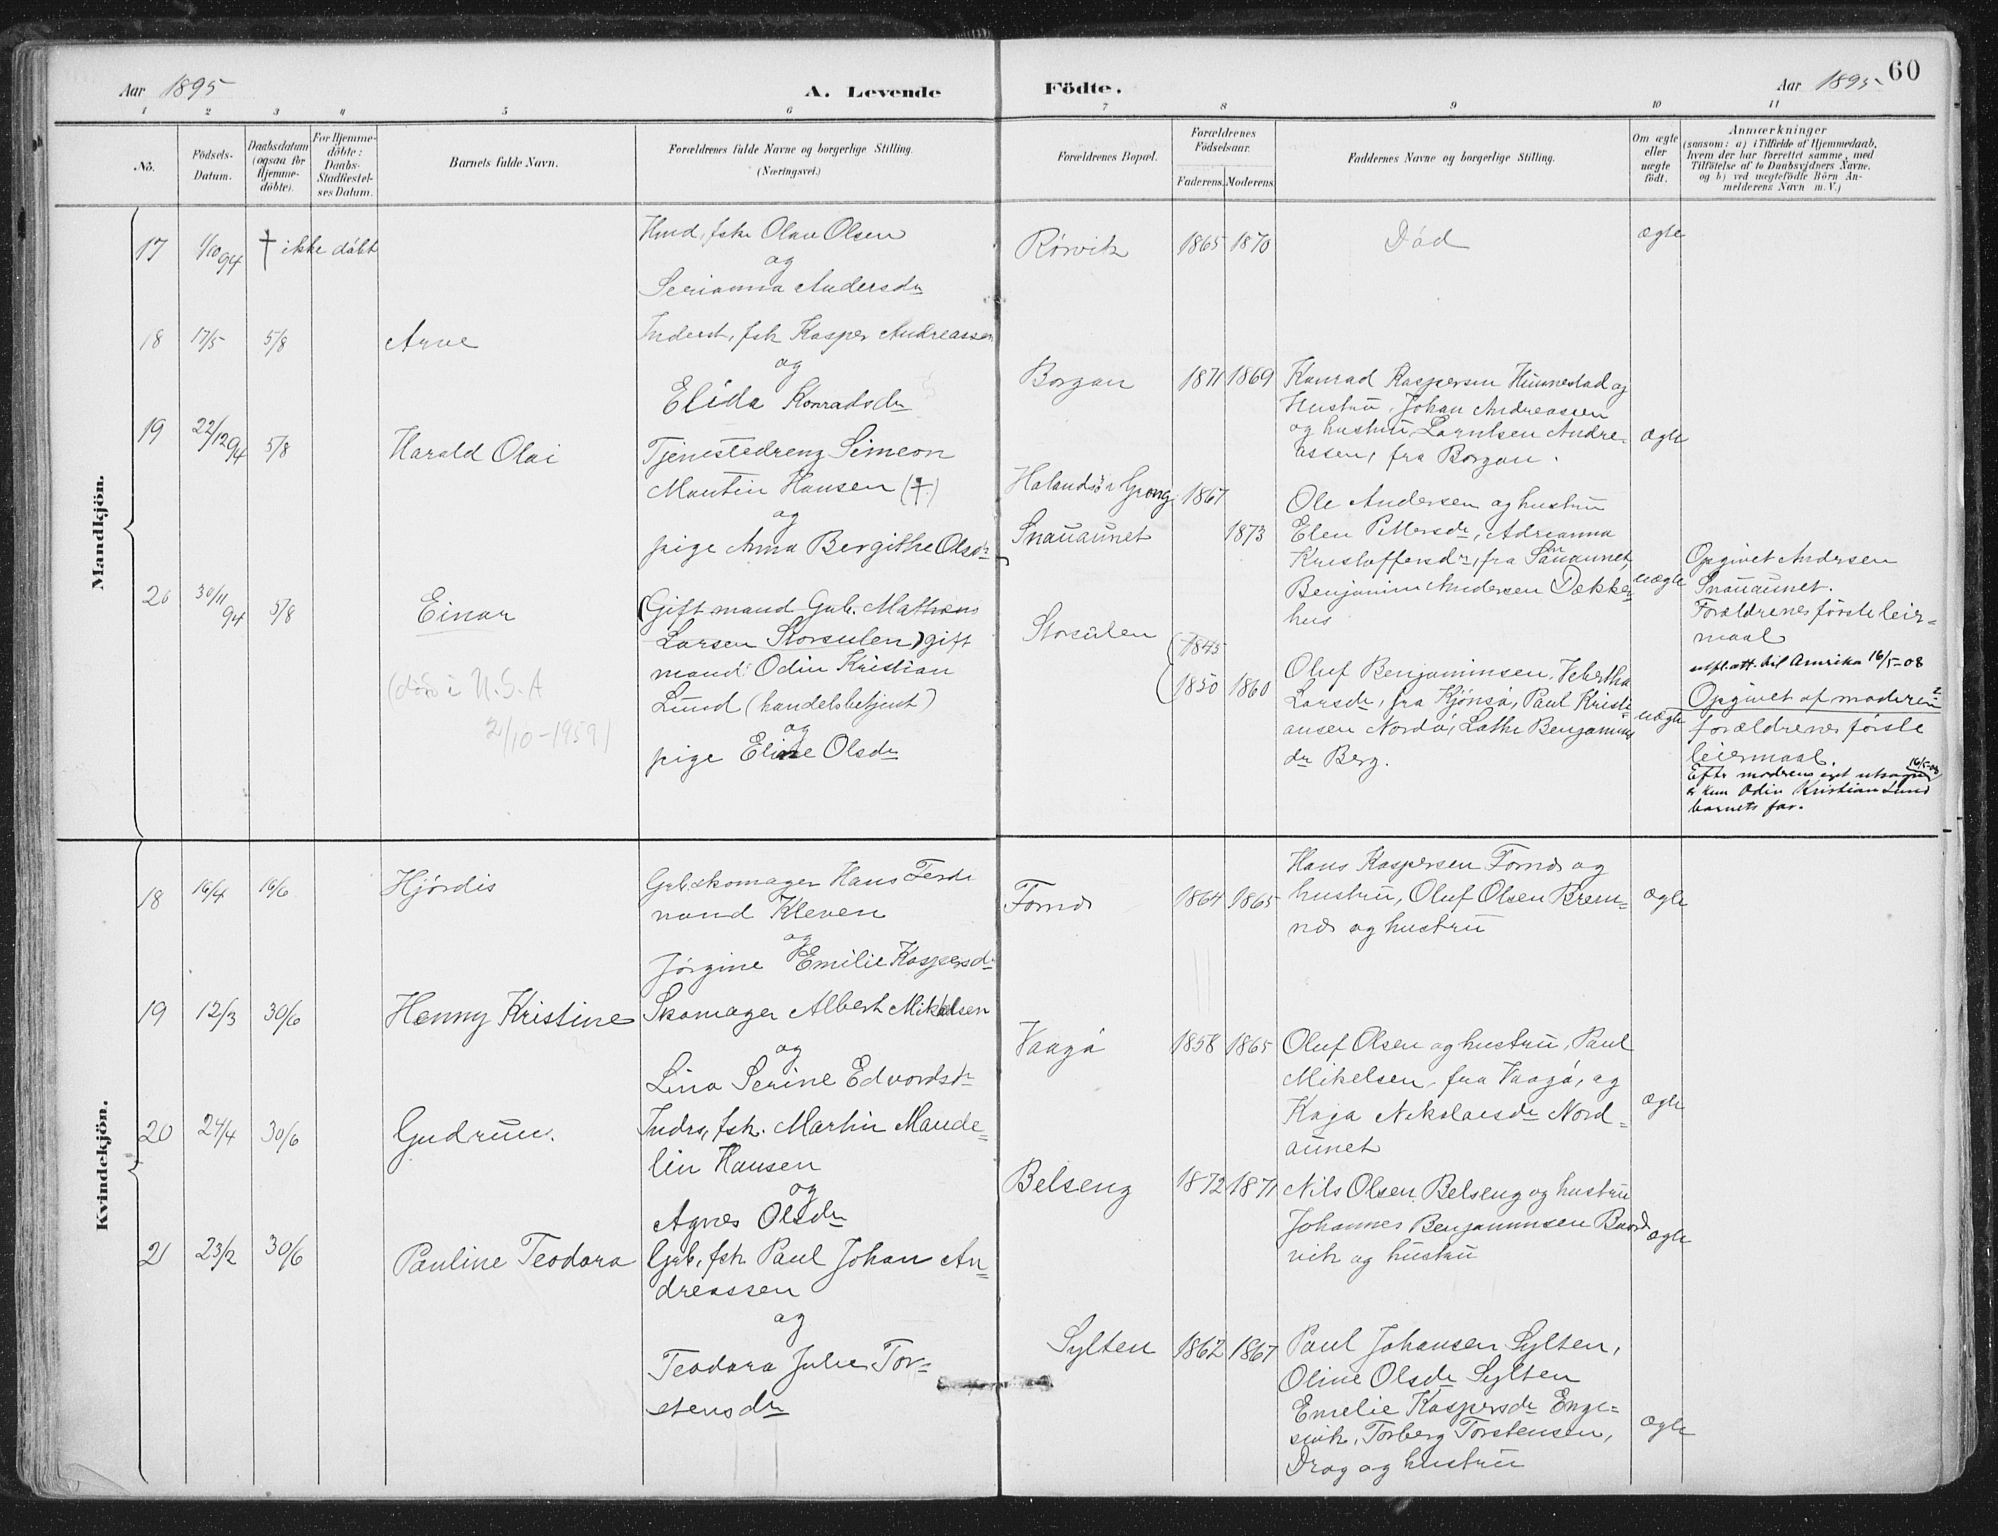 Aar 1895 A. Levende Födte. Aar 1895 60
1 2 3 4 5 6 7 8 9 10 11
No.
Födsels-
Datum.
Daabsdatum
(ogsaa for
Hjemme-
döbte).
For Hjemme-
döbte:
Daabs-
Stadfæstel-
ses Datum.
Barnets fulde Navn.
Forældrenes fulde Navne og borgerlige Stilling.
(Næringsvei.)
Forældrenes Bopæl.
Forældrenes
Födselsaar.
Faderens. Moderens.
Faddernes Navne og borgerlige Stilling.
Om ægte
eller
uægte
födt.
Anmærkninger
(saasom: a) i Tilfælde af Hjemmedaab,
hvem der har forrettet samme, med
Tilföielse af to Daabsvidners Navne,
og b) ved uægtefödte Börn An-
melderens Navn m. V.)
Mandkjön.
17 1/10 94 † ikke döbt
Hmd, fsk Olav Olsen
og
Serianna Andersdr
Rørvik 1865 1870 Död ægte
18 17/5 5/8 Arve
Inderst, fsk Kasper Andreassen
og
Elida Konradsdr
Borgan 1871 1869
Konrad Kaspersen Hunnestad og
Hustru, Johan Andreassen
og hustru, Larntsen Andre-
assen, fra Borgan.
ægte
19 22/12 94 5/8 Harald Olai
Tjenestedreng Simeon
Martin Hansen (†)
og
pige Anna Bergithe Olsdr
Halandsö i Grong 1867
Snauaunet 1873
Ole Andersen og hustru
Elen Pettersdr, Adrianna
Kristoffersdr, fra Snauaunet,
Benjamin Andersen Dække-
hus
uægte
Opgivet Andersen
Snauaunet.
Forældrenes förste leier-
maal
utfl.att. til Amrika 16/5-08
20 30/11 94 5/8 Einar
(död i U.S.A
2/10-1959)
(Gift mand Gub. Mathias
Larsen Storsulen) gift
mand Odin Kristian
Lund (handelsbetjent)
og
pige Eline Olsdr
Storsulen (1845
(1850 1860
Oluf Benjaminsen, Vebertha
Larsdr, fra Kjönsö, Paul Kristi-
ansen Nordö, Lathe Benjamins
dr Berg.
uægte
Opgivet af moderen
forældrenes förste
leiermaal.
16/5-08
Eftr modrens eget utsagn
er kun Odin Kristian Lund
barnets far.
Kvindekjön.
18 16/4 16/6 Hjördis
Grb. skomager Hans Ferdi
nand Kleven
og
Jörgine Emilie Kaspersdr
Fornds 1864 1865
Hans Kaspersen Fornds og
hustru, Oluf Olsen Brem-
nds og hustru
ægte
19 12/3 30/6 Henny Kristine
Skomager Albert Mikkelsen
og
Lina Serine Edvardsdr
Vaagö 1858 1865
Oluf Olsen og hustru, Paul
Mikelsen, fra Vaagö, og
Kaja Nikolaisdr Nord-
aunet
ægte
20 24/4 30/6 Gudrun.
Indrs, fsk. Martin Mande-
lin Hansen
og
Agnes Olsdr
Belseng 1872 1871
Nils Olsen Belseng og hustru
Johannes Benjaminsen Baard
vik og hustru
ægte
21 23/2 30/6 Pauline Teodora
Grb, fsk Paul Johan An-
dreassen
og
Teodora Julie Tor-
stensdr
Sylten 1862 1867
Paul Johansen Sylten,
Oline Olsdr Sylten
Emelie Kaspersdr Enge-
svik, Torberg Torstensen,
Drag og hustru
ægte